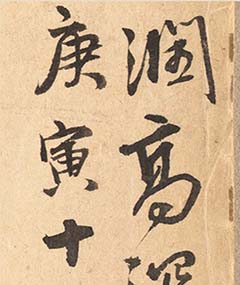 澗高深
庚寅十